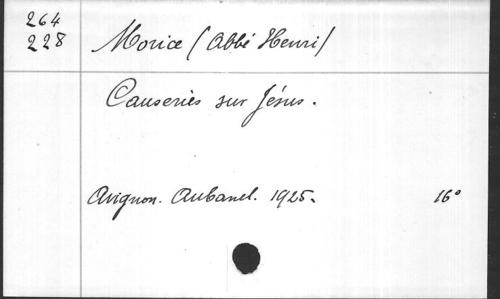 264
228
Morice (Abbé Henri)
Causeries sur Jésus.
Avignon. Aubanel. 1925. 16°